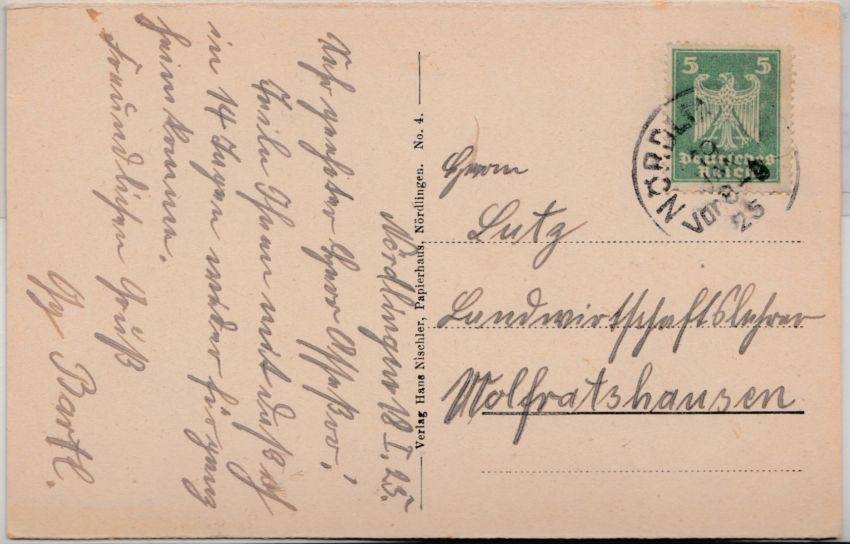 Nördlingen 18 I. 25.
Sehr geehrter Herr Assessor!
Teile Ihnen mit daß ich
in 14 Tagen wieder für ganz
heimkomme.
Freundlichen Gruß
Bartl.
Verlag Hans Nischler, Papierhaus, Nördlingen. No. 4.
5 5
Deutsches
Reich
NÖRDLIN
Vor 8-9
25
Herrn
Lutz
Landwirtschaftslehrer
Wolfratshausen